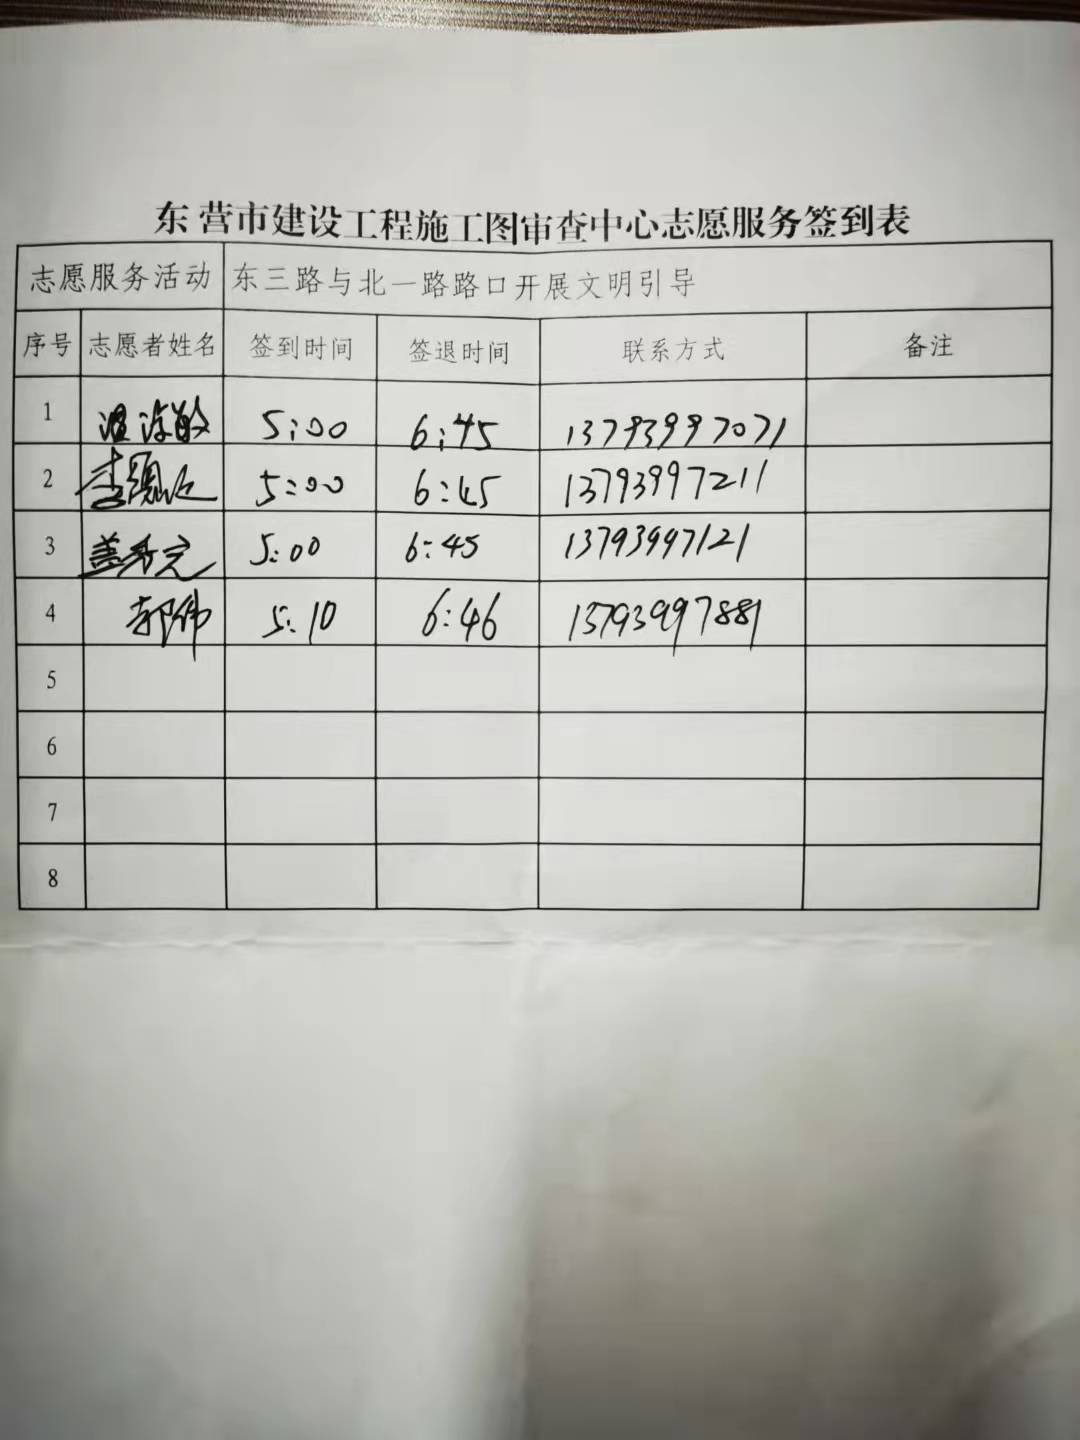 东营市建设工程施工图审查中心志愿服务签到表
志愿服务活动 东三路与北一路路口开展文明引导
序号 志愿者姓名 签到时间 签退时间 联系方式 备注
1 5:00 6:45 13793997071
2 5:00 6:45 13793997211
3 5:00 6:45 13793997121
4 郭伟 5:10 6:46 13793997881
5
6
7
8